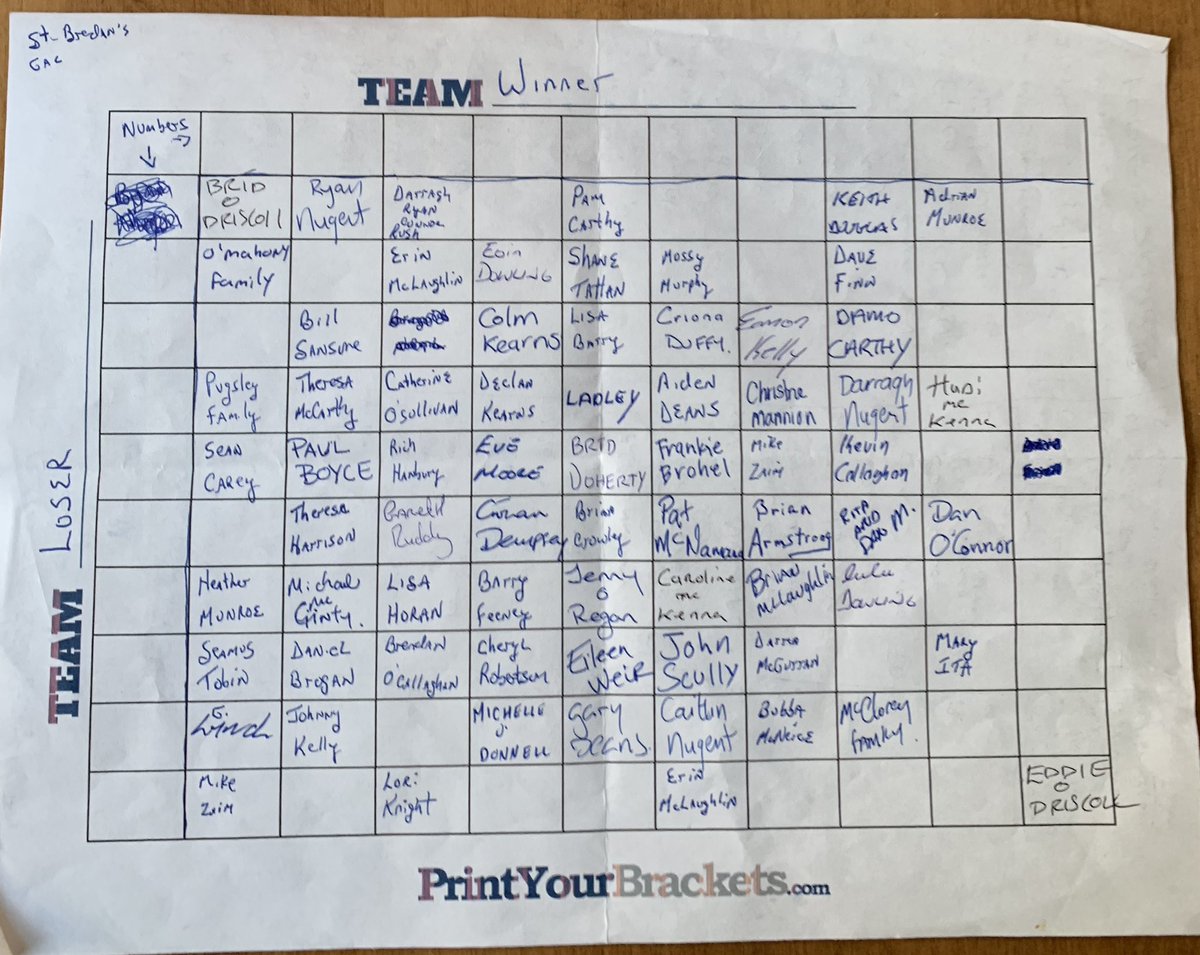 St. Bredan's
GAC
TEAM Winner
Numbers
TEAM LOSER
BRID O DRISCOLL
Ryan Nugent
Darragh RYAN CONNOR RUSH
PAM CARTHY
KEITH DOUGLAS
ADRIAN MUNROE
O'mahony Family
Erin McLaughlin
Eoin DOWLING
SHANE TAHAN
Mossy Murphy
DAVE FINN
Bill SANSONE
Colm Kearns
LISA Barry
Criona DUFFY.
Eamon Kelly
DAMO CARTHY
Pugsley FAMILY
THERESA McCarthy
CATHERINE O'SULLIVAN
DECLAN KEARNS
LADLEY
AIDEN DEANS
Christine Mannion
Darragh Nugent
HUDI mc Kenna
SEAN CAREY
PAUL BOYCE
Rich Hanbury
EVE MOORE
BRID DOHERTY
Frankie Brohel
MIKE ZAIM
Kevin Callaghan
Theresa HARRISON
Gareth Ruddy
Ciaran Dempsey
Brian Crowley
Pat McNamara
Brian Armstrong
RITA AND DAN M.
Dan O'Connor
Heather MUNROE
Michael mc Ginty.
LISA HORAN
Barry Feeney
Jerry O Regan
Caroline mc Kenna
Brian McLaughlin
Lulu DOWLING
SEAMUS Tobin
DANIEL BROGAN
Brendan O'CALLAGHAN
Cheryl Robertson
Eileen Weir
John Scully
DARREN McGURRAN
MARY ITA
G. Lynch
Johnny Kelly
MICHELLE O' DONNELL
Gary DEANS.
Caitlin Nugent
BUBBA McNeice
McClorey FAMILY.
Mike ZAIM
LORI Knight
ERIN McLaughlin
EDDIE O DRISCOLL
PrintYourBrackets.com